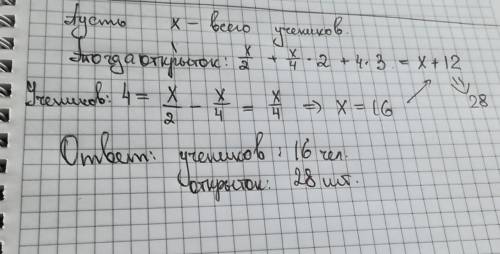 Пусть x – всего учеников.
Тогда открыток: x/2 + x/4 · 2 + 4 · 3 = x + 12
28
Учеников: 4 = x/2 − x/4 = x/4 ⇒ x = 16
Ответ: учеников: 16 чел.
открыток: 28 шт.